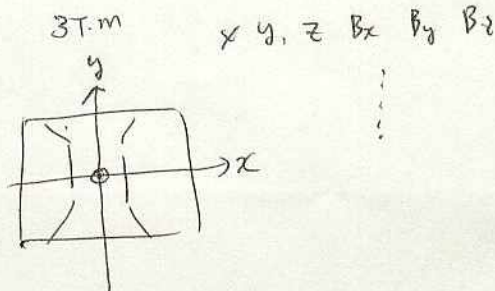 3T.m
x y, z Bx By Bz
y
x